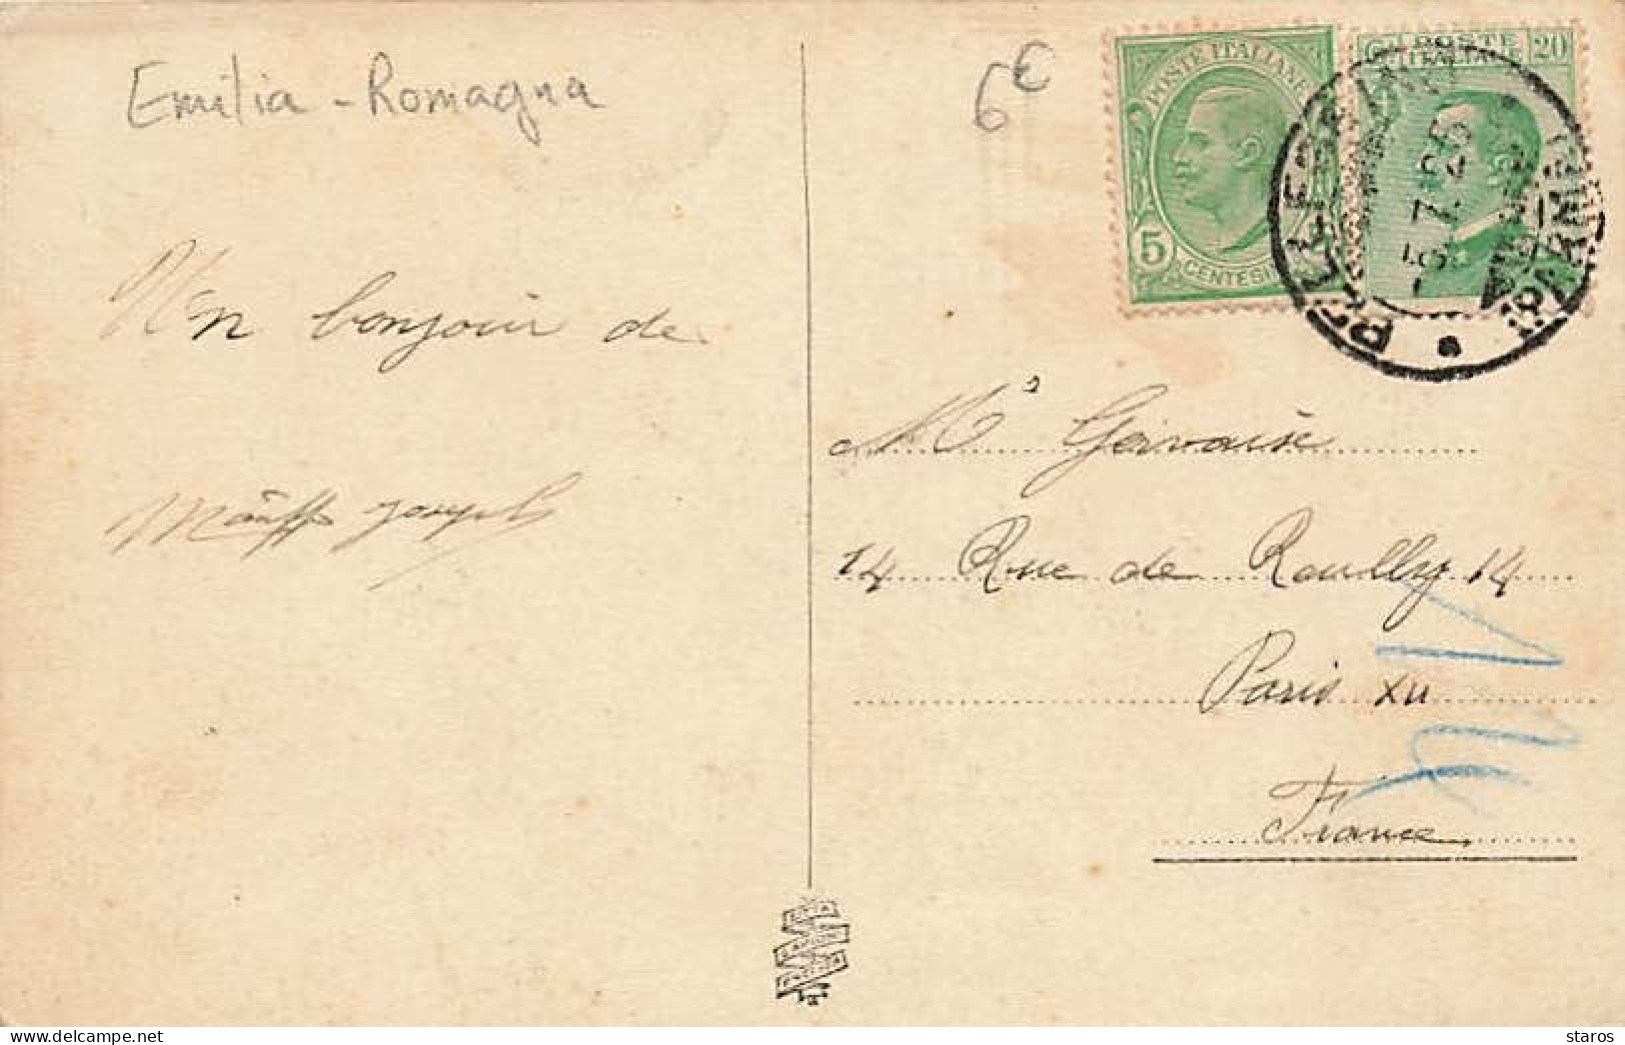 Emilia - Romagna
6€
POSTE ITALIANE
5
CENTESIMI
POSTE
ITALIANE
20
- 5.7.25
Un bonjour de
Joseph
Mr Gervaise
14 Rue de Reuilly 14
Paris XII
France
DITTA
staros